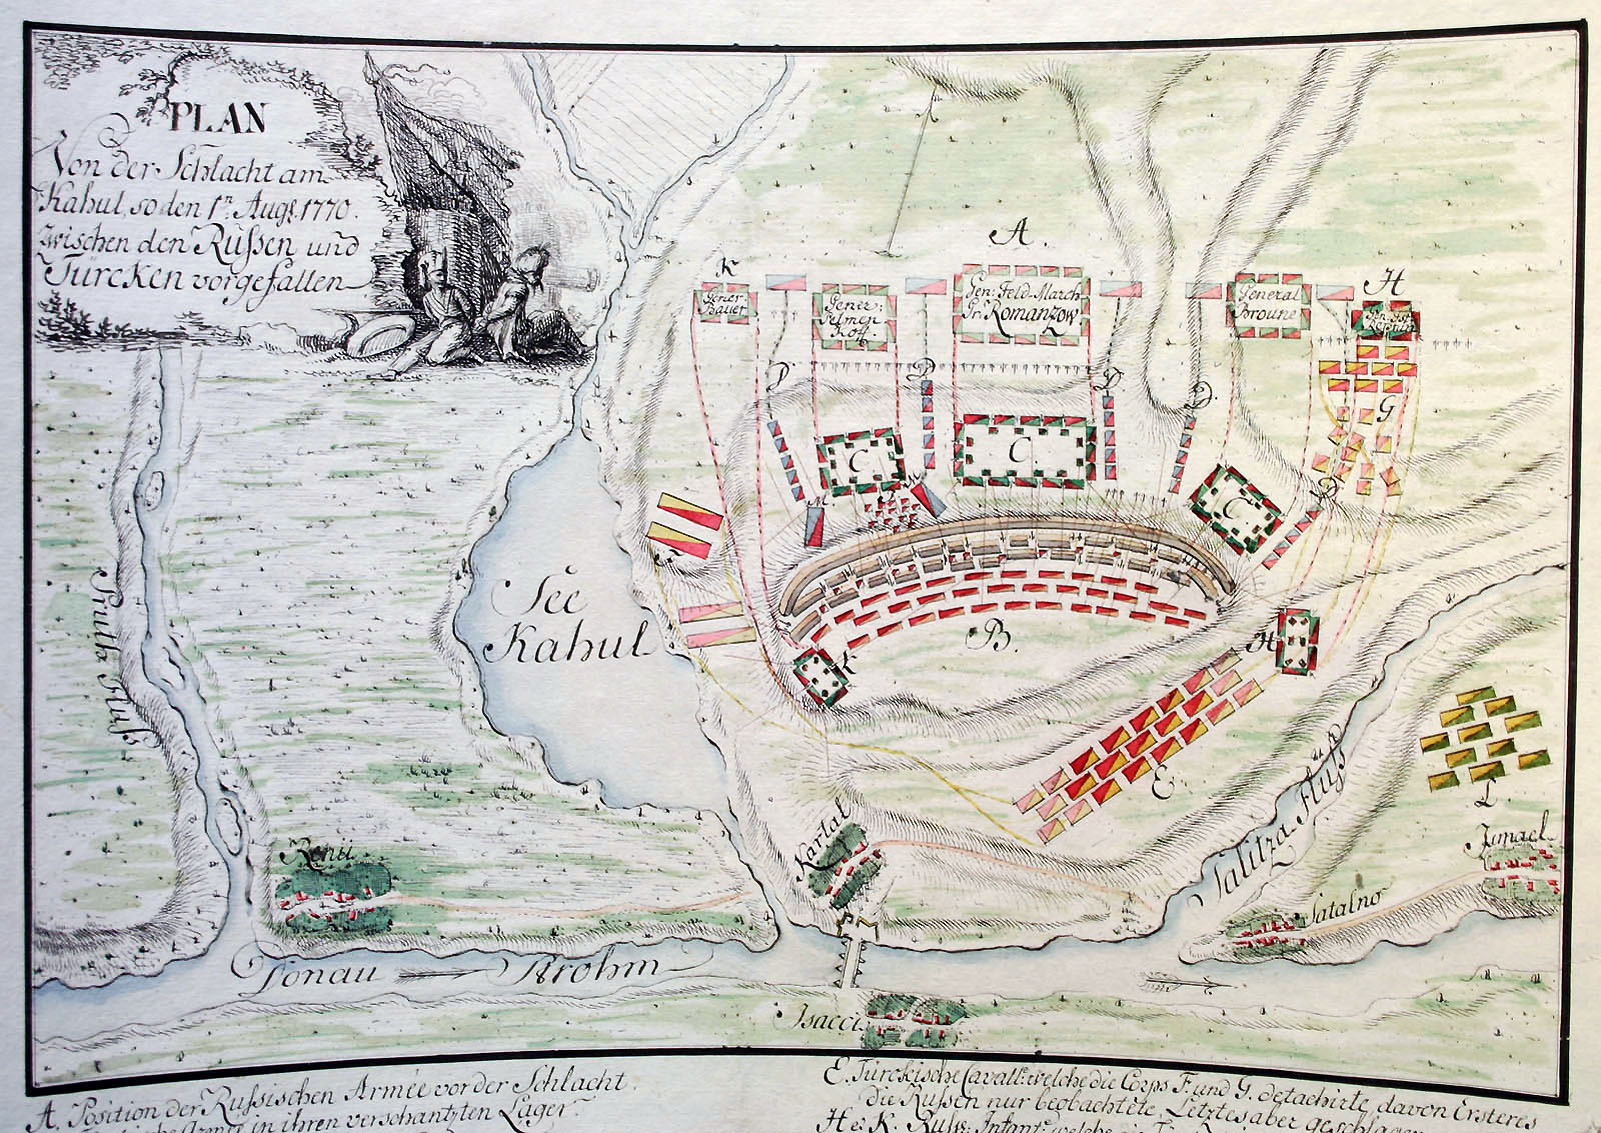 PLAN
Von der Schlacht am
Kahul, so den 1.n Augs. 1770.
zwischen den Rußen und
Türcken vorgefallen
K
A.
H
Gener. Bauer
Gener:
Gen: Feld-March
Gr. Romanzow
General
Broune
D
D
D
D.
G
C
C
C
D
See
Kahul
B.
K
H
E.
L.
Pruth Fluß
Reni
Kartal
Salitza Fluß
Satalno
Ismael
Donau Strohm
Isacci
A. Position der Rußischen Armée vor der Schlacht.
Armée in ihren verschantzten Lager.
E. Türckische Cavall: welche die Corps F. und G. detachirte, davon Ersteres
die Rußen nur beobachtete, Letztes aber geschlagen
H et K. Ruß: Infant: welche